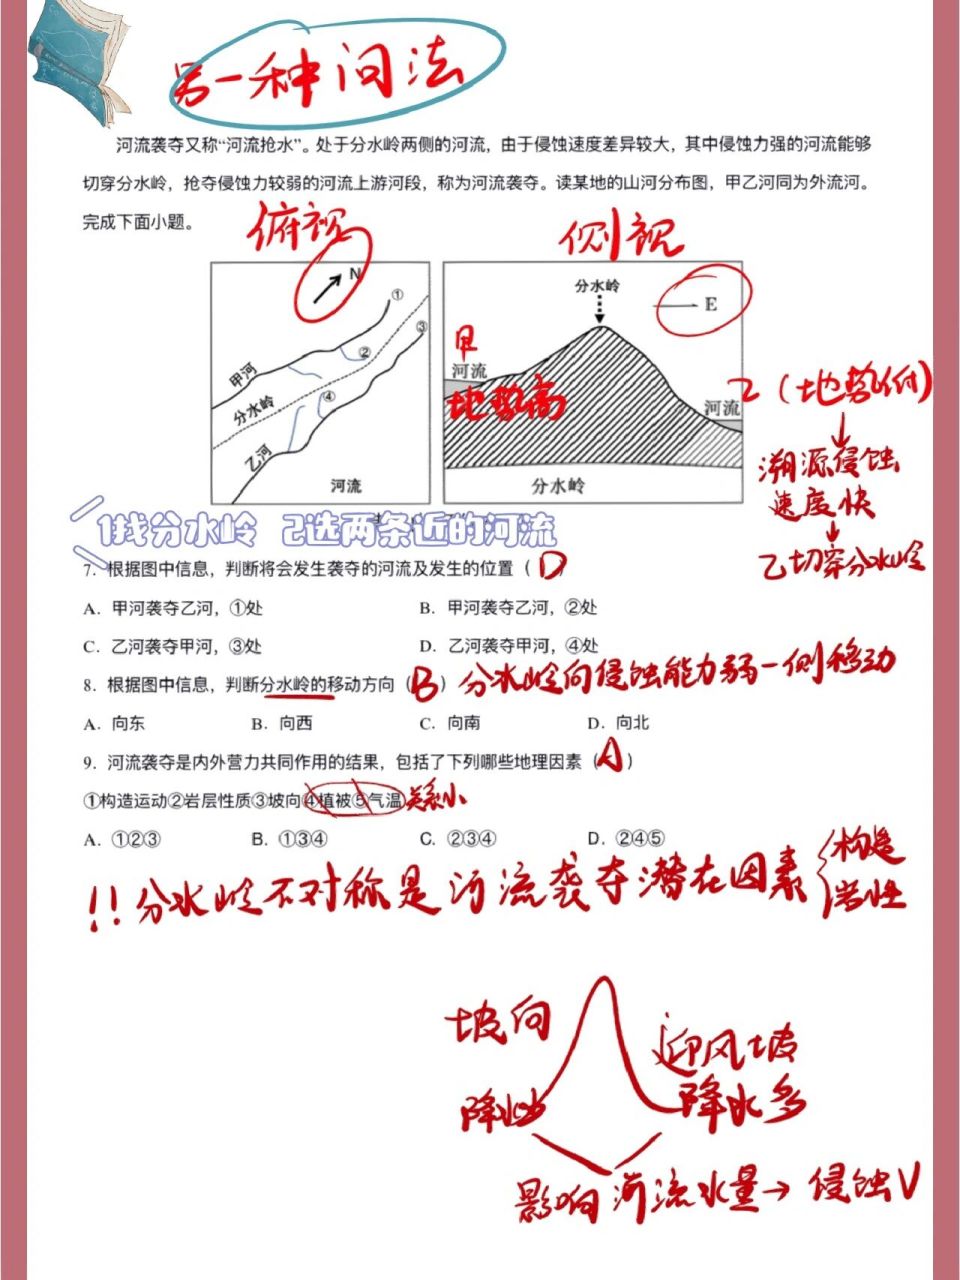 另一种问法
河流袭夺又称“河流抢水”。处于分水岭两侧的河流，由于侵蚀速度差异较大，其中侵蚀力强的河流能够
切穿分水岭，抢夺侵蚀力较弱的河流上游河段，称为河流袭夺。读某地的山河分布图，甲乙河同为外流河。
完成下面小题。
俯视
侧视
N
①
③
②
甲河
分水岭
④
乙河
河流
分水岭
E
甲
河流
地势高
乙（地势低）
河流
分水岭
溯源侵蚀
速度快
乙切穿分水岭
1找分水岭 2选两条近的河流
7．根据图中信息，判断将会发生袭夺的河流及发生的位置（ D ）
A．甲河袭夺乙河，①处 B．甲河袭夺乙河，②处
C．乙河袭夺甲河，③处 D．乙河袭夺甲河，④处
8．根据图中信息，判断分水岭的移动方向（ B ） 分水岭向侵蚀能力弱一侧移动
A．向东 B．向西 C．向南 D．向北
9．河流袭夺是内外营力共同作用的结果，包括了下列哪些地理因素（ A ）
①构造运动②岩层性质③坡向④植被⑤气温 关系小
A．①②③ B．①③④ C．②③④ D．②④⑤
!!分水岭不对称是河流袭夺潜在因素 构造
岩性
坡向
迎风坡
降水少
降水多
影响河流水量→侵蚀V